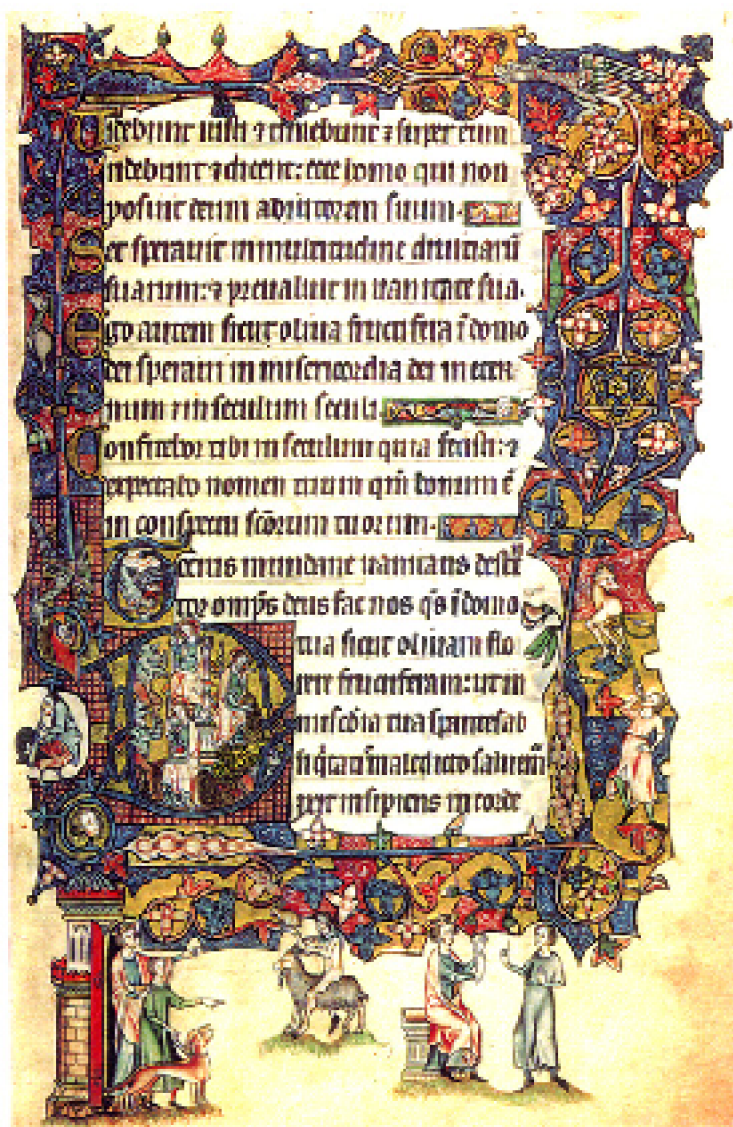 Videbunt iusti ⁊ timebunt ⁊ super eum
ridebunt ⁊ dicent: ecce homo qui non
posuit deum adiutorem suum.
Set speravit in multitudine divitiarū
suarum: ⁊ prevaluit in vanitate sua.
Ego autem sicut oliva fructifera ī domo
dei speravi in misericordia dei in eter-
num ⁊ in seculum seculi.
Confitebor tibi in seculum quia fecisti: ⁊
expectabo nomen tuum qm̄ bonum ē
in conspectu sc̄orum tuorum.
mundane vanitatis
tor omp̄s deus fac nos q̄s ī domo
tua sicut olivam flo
rere fructiferam: ut in
mis̄cdia tua sp̄antes ab
maledicto salvem̄
Dixit insipiens in corde